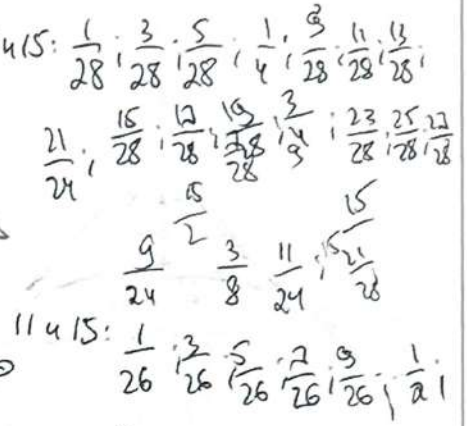 и 15: 1/28 ; 3/28 ; 5/28 ; 1/4 ; 9/28 ; 11/28 ; 13/28 ;
21/24 ; 15/28 ; 17/28 ; 19/28 ; 3/4 ; 23/28 ; 25/28 ; 27/28
15/2 15
9/24 3/8 11/24 ; 15 21/28
11 и 15: 1/26 ; 3/26 ; 5/26 ; 7/26 ; 9/26 ; 1/2 ;